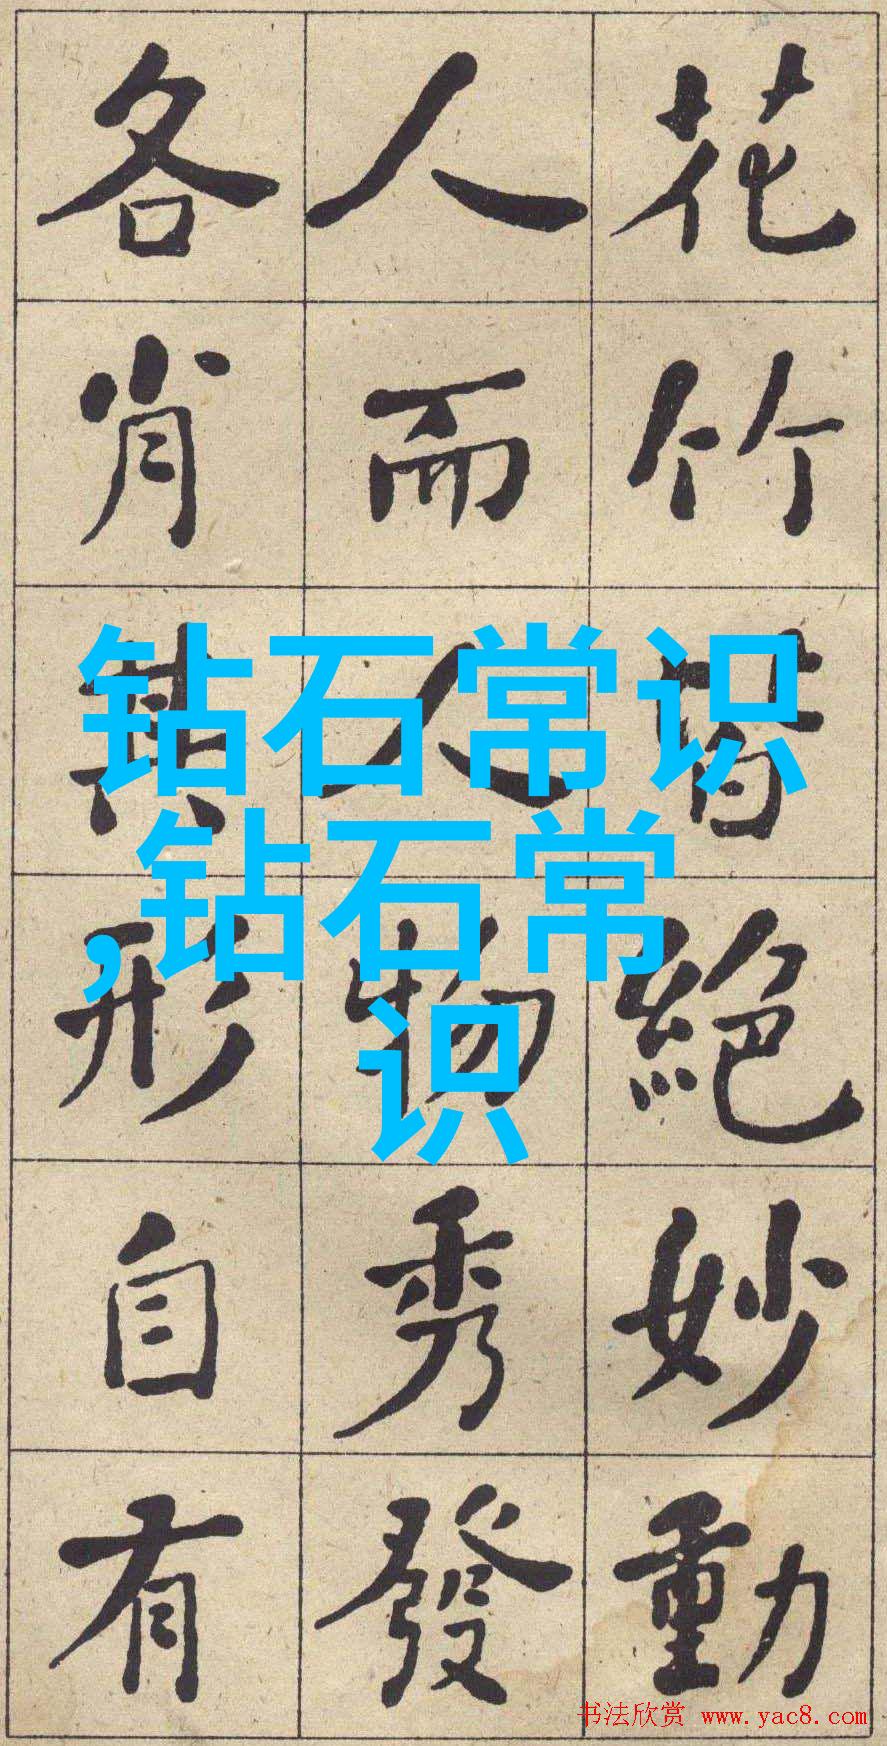 花竹皆絶妙動
人而人物秀發
各肖其形自有
钻石常识
,钻石常
识
书法欣赏 www.yac8.com